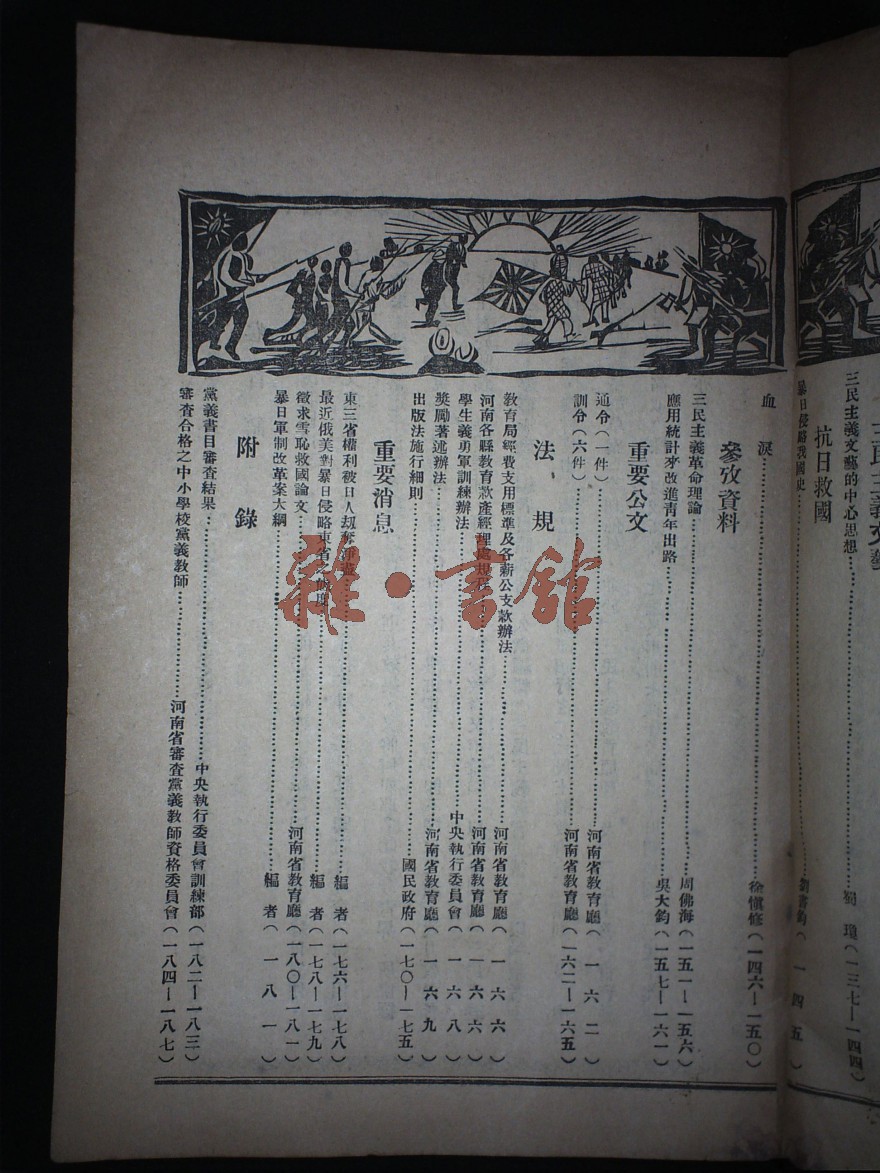 三民主義文藝
三民主義文藝的中心思想(一三七—一四四)
抗日救國
暴日侵略我國史 劉書鈞(一四五)
血淚 徐慎修(一四六—一五〇)
參攷資料
三民主義革命理論 周佛海(一五一—一五六)
應用統計來改進青年出路 吳大鈞(一五七—一六一)
重要公文
通令(一件) 河南省教育廳(一六二)
訓令(六件) 河南省教育廳(一六二—一六五)
法規
教育局經費支用標準及各薪公支款辦法 河南省教育廳(一六六)
河南各縣教育款產經理處規程 河南省教育廳(一六六)
學生義勇軍訓練辦法 中央執行委員會(一六八)
獎勵著述辦法 河南省教育廳(一六九)
出版法施行細則 國民政府(一七〇—一七五)
重要消息
東三省權利被日人刼奪 編者(一七六—一七八)
最近俄美對暴日侵略東省之態度 編者(一七八—一七九)
徵求雪恥救國論文 河南省教育廳(一八〇—一八一)
暴日軍制改革案大綱 編者(一八一)
附錄
黨義書目審查結果 中央執行委員會訓練部(一八二—一八三)
審查合格之中小學校黨義教師 河南省審查黨義教師資格委員會(一八四—一八七)
雜·書館